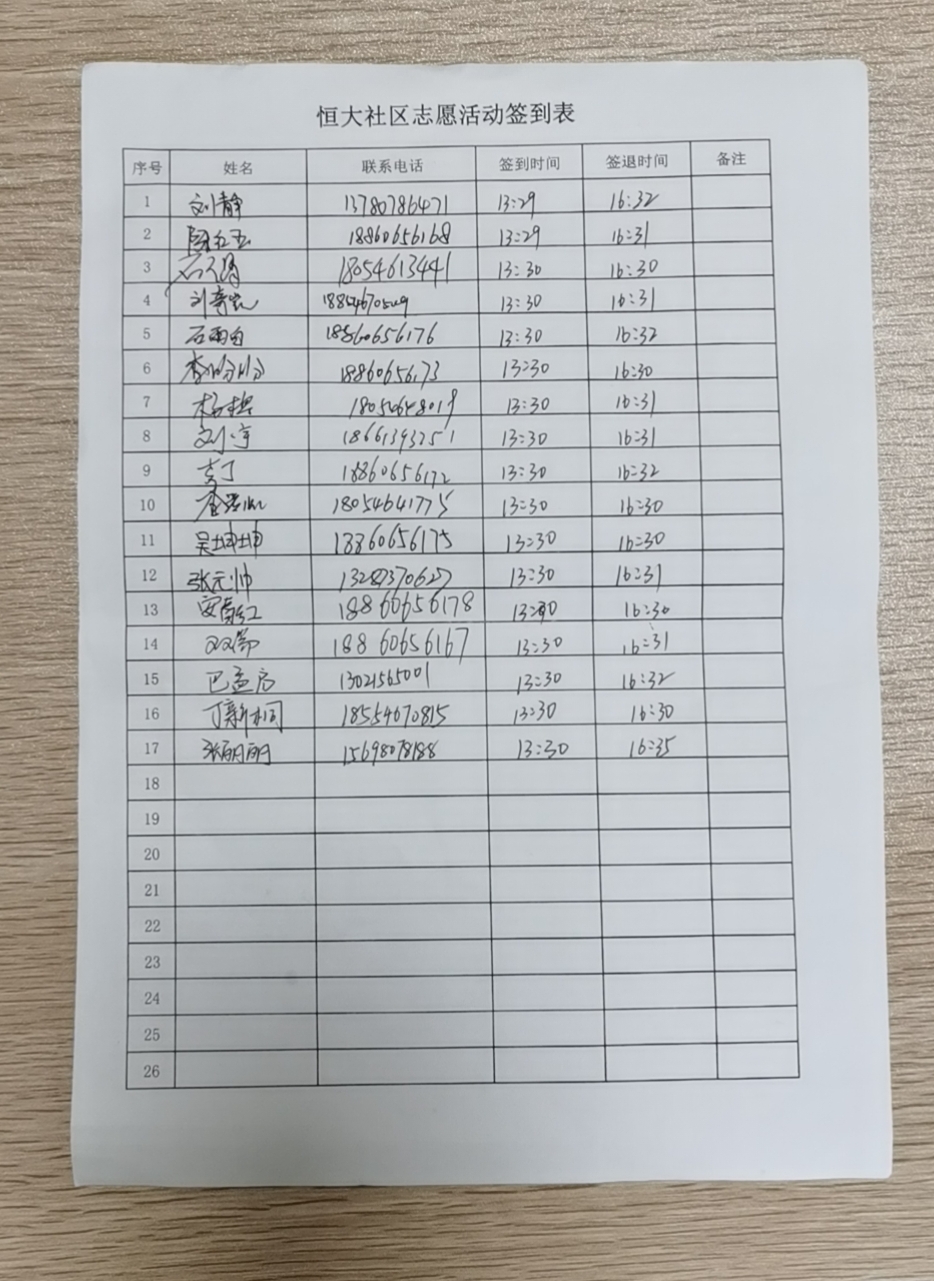 恒大社区志愿活动签到表
序号 姓名 联系电话 签到时间 签退时间 备注
1 刘静 13780786471 13:29 16:32
2 18860656168 13:29 16:31
3 18054613441 13:30 16:30
4 13:30 16:31
5 石雨鱼 18560656176 13:30 16:32
6 李盼盼 18860656173 13:30 16:30
7 13:30 16:31
8 刘宇 18661393251 13:30 16:31
9 18860656172 13:30 16:32
10 18054641775 13:30 16:30
11 吴坤坤 18860656175 13:30 16:30
12 张元帅 13287370627 13:30 16:31
13 18860656178 13:30 16:30
14 18860656167 13:30 16:31
15 巴孟启 13021565001 13:30 16:32
16 丁新桐 18554670815 13:30 16:30
17 张丽丽 15698078188 13:30 16:35
18
19
20
21
22
23
24
25
26